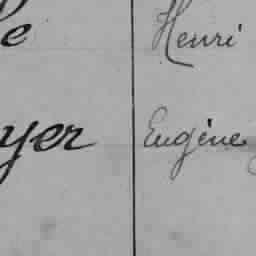 e Henri
yer Eugène